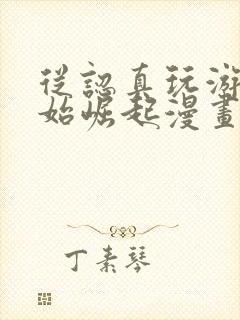 從認真玩游
始崛起漫畫
丁素琴